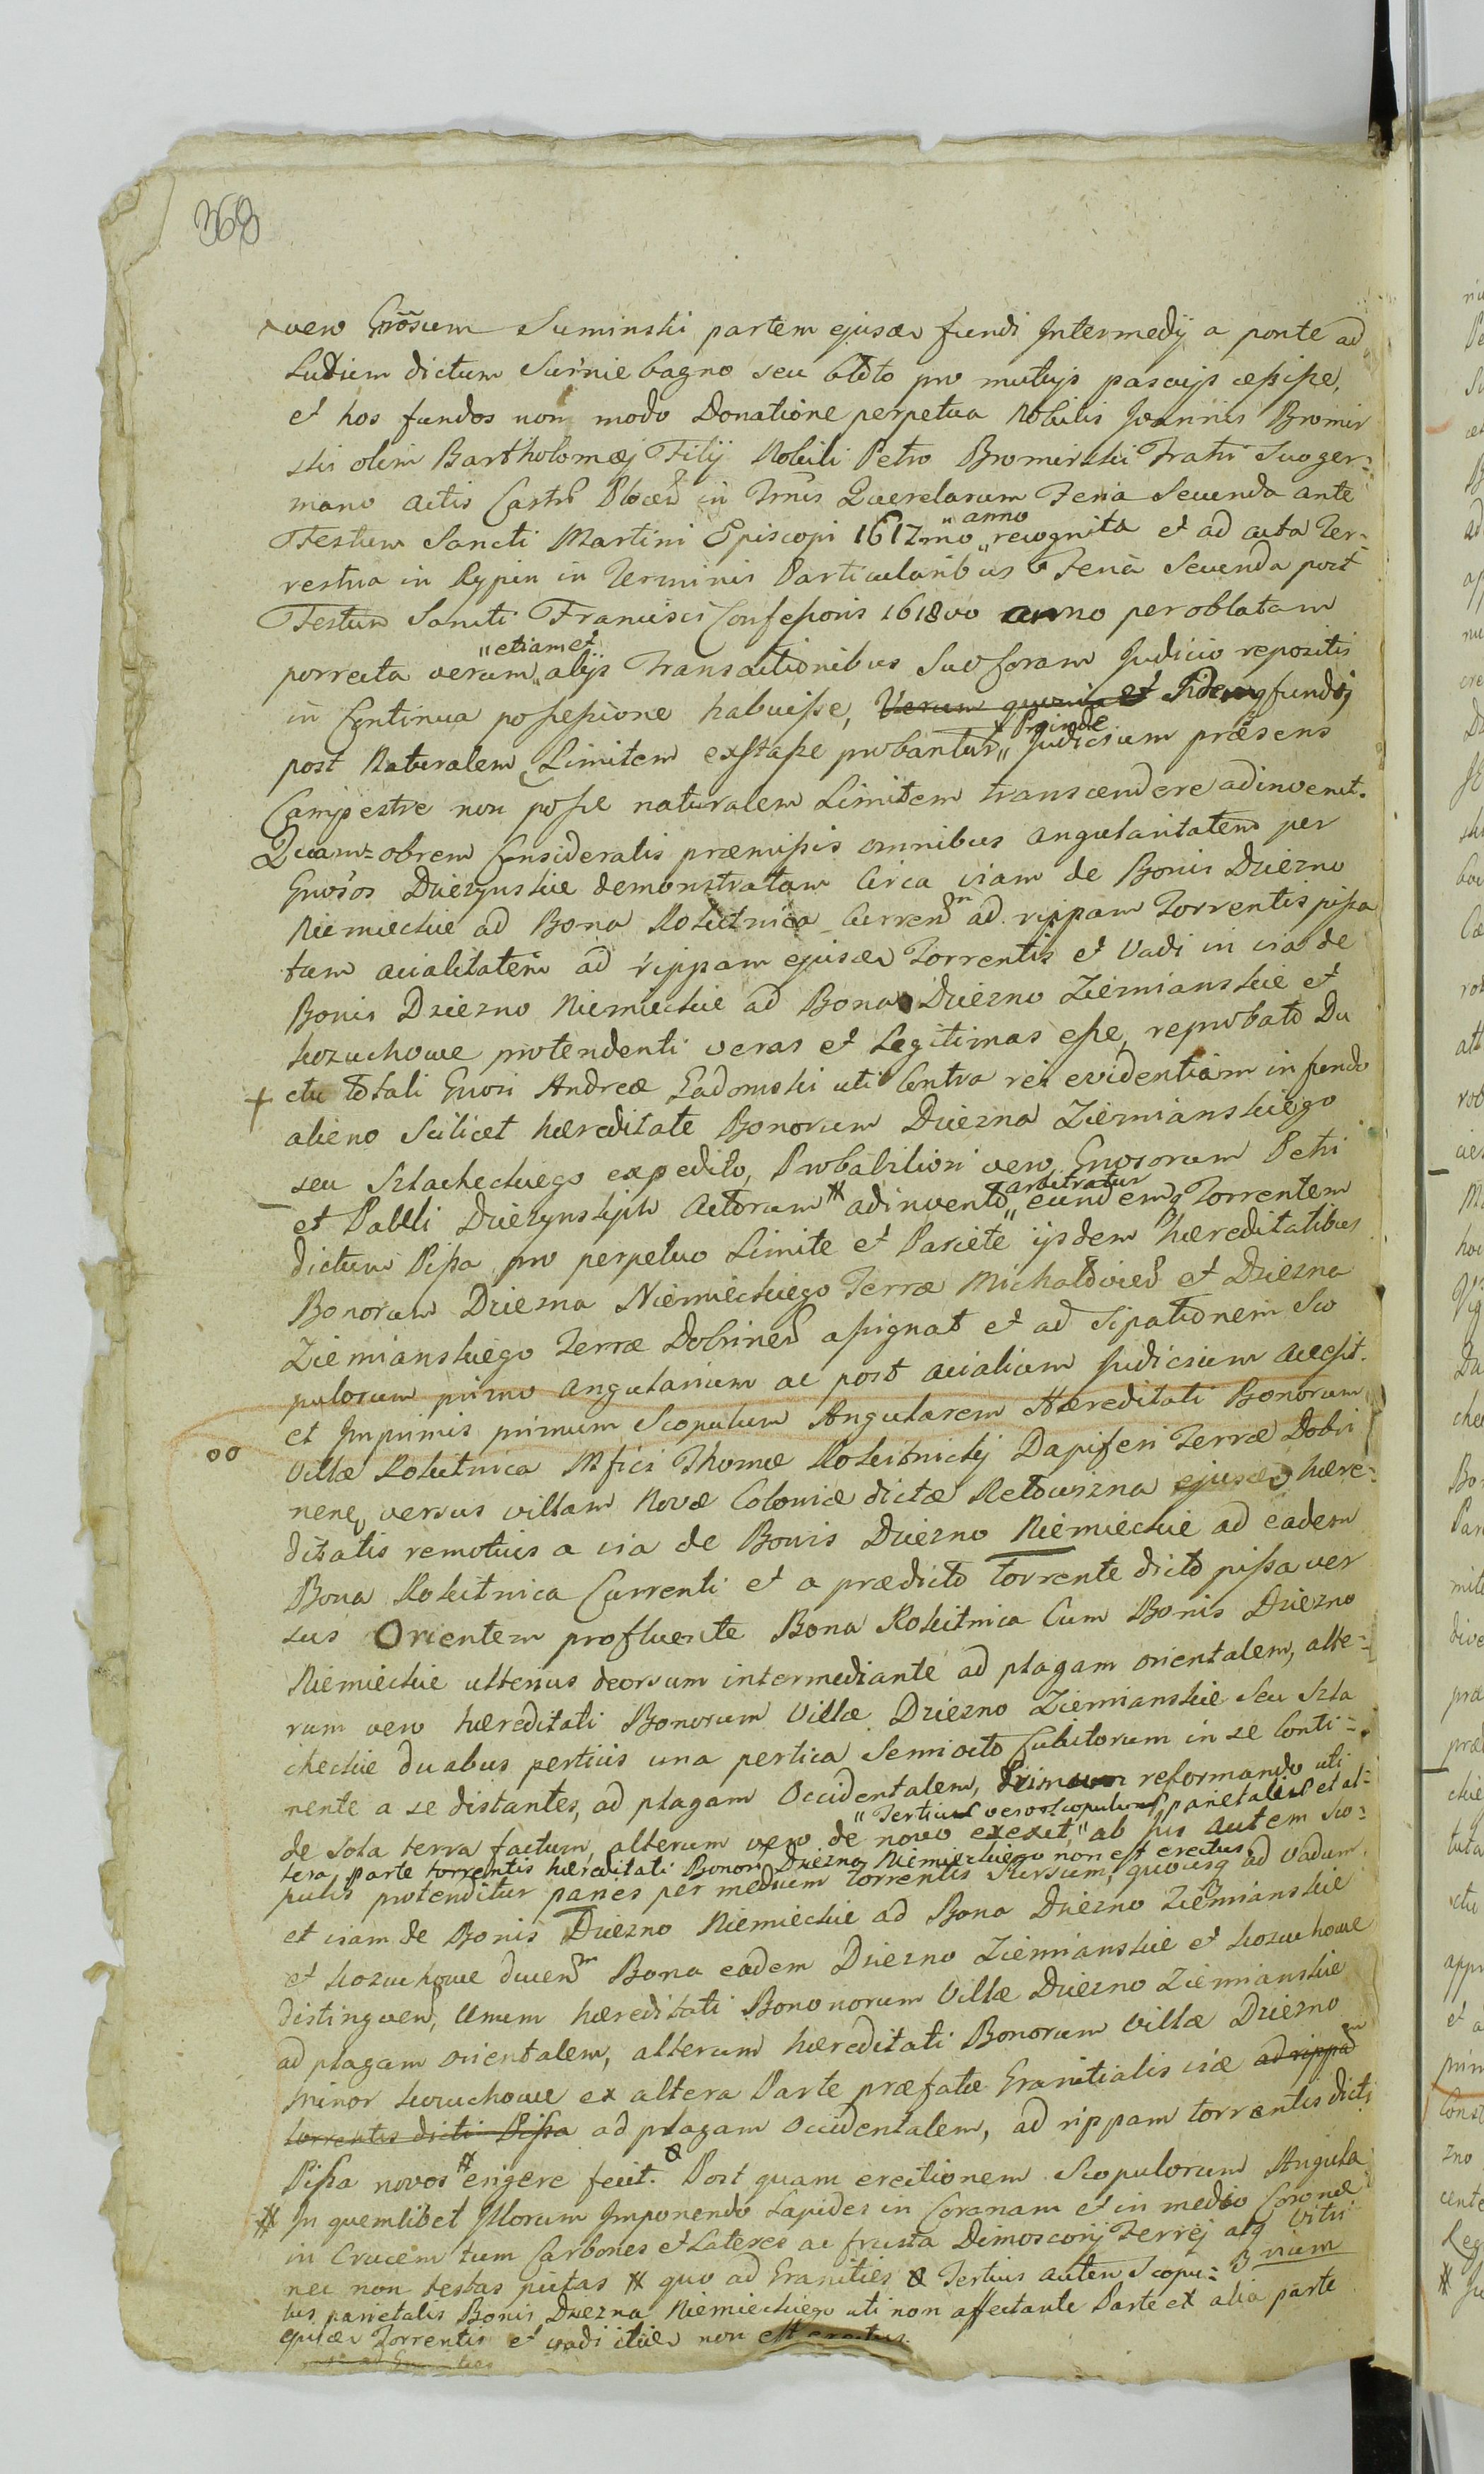 368
vero Gnosum Suminski partem ejusdem fundi Intermedij a ponte ad
Ludium dictum Surnie bagno seu bloto pro mutujs pascujs cessisse,
et hos fundos non modo Donatione perpetua Nobilis Joannis Bromir
ski olim Bartholomæj Filij Nobili Petro Bromirski Fratri Suo ger=
mano actis Castr Plocen in Trnis Querelarum Feria Secunda ante
Festum Sancti Martini Episcopi 1612mo " anno " recognita et ad acta Ter=
restria in Rypin in Terminis Particularibus Feria Secunda post
Festum Sancti Francisci Confessoris 1618vo anno per oblatam
porrecta verum " etiam et " alijs Transactionibus Suo foram Judicio repositis
in Continua possessione habuisse, Verum quoniam et Fidem fundj
post Naturalem Limitem exstasse probantur " Proinde Judicium præsens
Campestre non posse naturalem Limitem transcendere adinvenit.
Quam=obrem Consideratis præmissis omnibus angularitatem per
Gnosos Dziezynskie demonstratam Circa viam de Bonis Dziezno
Niemieckie ad Bona Rokitnica Curren ad rippam Torrentis pissa
tum acialitatem ad rippam ejusdem Torrentis et Vadi in via de
Bonis Dziezno Niemieckie ad Bona Dziezno Ziemianskie et
kozuchowe protendenti veras et Legitimas esse, reprobato Du
+ ctu totali Gnosi Andreæ Gadomski uti Contra rei evidentiam in fundo
alieno Scilicet hæreditate Bonorum Dziezna Ziemianskiego
seu Szlacheckiego expedito, Probabiliori vero Gnosorum Petri
et Pauli Dziezynskich Actorum # adinvento " arbitratur eundemq Torrentem
dictum Pissa pro perpetuo Limite et Pariete ijsdem hæreditatibus
Bonorum Dziezna Niemieckiego Terræ Michałovien et Dziezna
Ziemianskiego Terræ Dobrinen assignat et ad Sipationem Sco
pulorum primo angularium ac post acialium Judicium accessit.
et Imprimis primum Scopulum Angularem Hæreditati Bonorum
oo Villæ Rokitnica Mfici Thomæ Rokitnickj Dapiferi Terræ Dobri
nens, versus villam Novæ Coloniæ dictæ Retowizna ejusdem hære=
ditatis remotius a via de Bonis Dziezno Niemieckie ad eadem
Bona Rokitnica Currenti et a prædicto torrente dicto pissa ver
sus Orientem profluente Bona Rokitnica Cum Bonis Dziezno
Niemieckie ulterius deorsum intermediante ad plagam orientalem, alte=
rum vero hæreditati Bonorum Villæ Dziezno Ziemianskie Seu Szla
checkie duabus perticis una pertica Semiocto Cubitorum in se Conti=
nente a se distantes, ad plagam Occidentalem, Primum reformando uti
de sola terra factum, alterum vero de novo exexit, " ab his autem sco=
" Tertius vero scopulus parietalis et al=
tera parte torrentis hæreditati Bonor Dziezno Niemieckiego non est erectus,
pulis protenditur paries per medium torrentis Sursum, quousq ad vadum
et viam de Bonis Dziezno Niemieckie ad Bona Dziezno Ziemianskie
et kozuchowe ducen Bona eadem Dziezno Ziemianskie et kozuchowe
distinguen, Unum hæreditati Bononorum Villæ Dziezno Ziemianskie
ad plagam orientalem, alterum hæreditati Bonorum Villæ Dziezno
minor kozuchowe ex altera Parte præfatæ Granitialis viæ ad rippam
torrentis dicti Pissa ad plagam Occidentalem, ad rippam torrentis dicti
Pissa novos # erigere fecit. Post quam erectionem Scopulorum Angula
# In quemlibet Illorum Imponendo Lapides in Coronam et in medio Coronæ
in Crucem tum Carbones et Lateres ac frusta Dimosconij Ferrej atq Vitri
nec non testas pictas # quo ad Granicies Tertius autem Scopu= rium
lus parietalis Bonis Dziezna Niemieckiego uti non affectante Parte et alia parte
ejusdem Torrentis et vadi non est erectus.